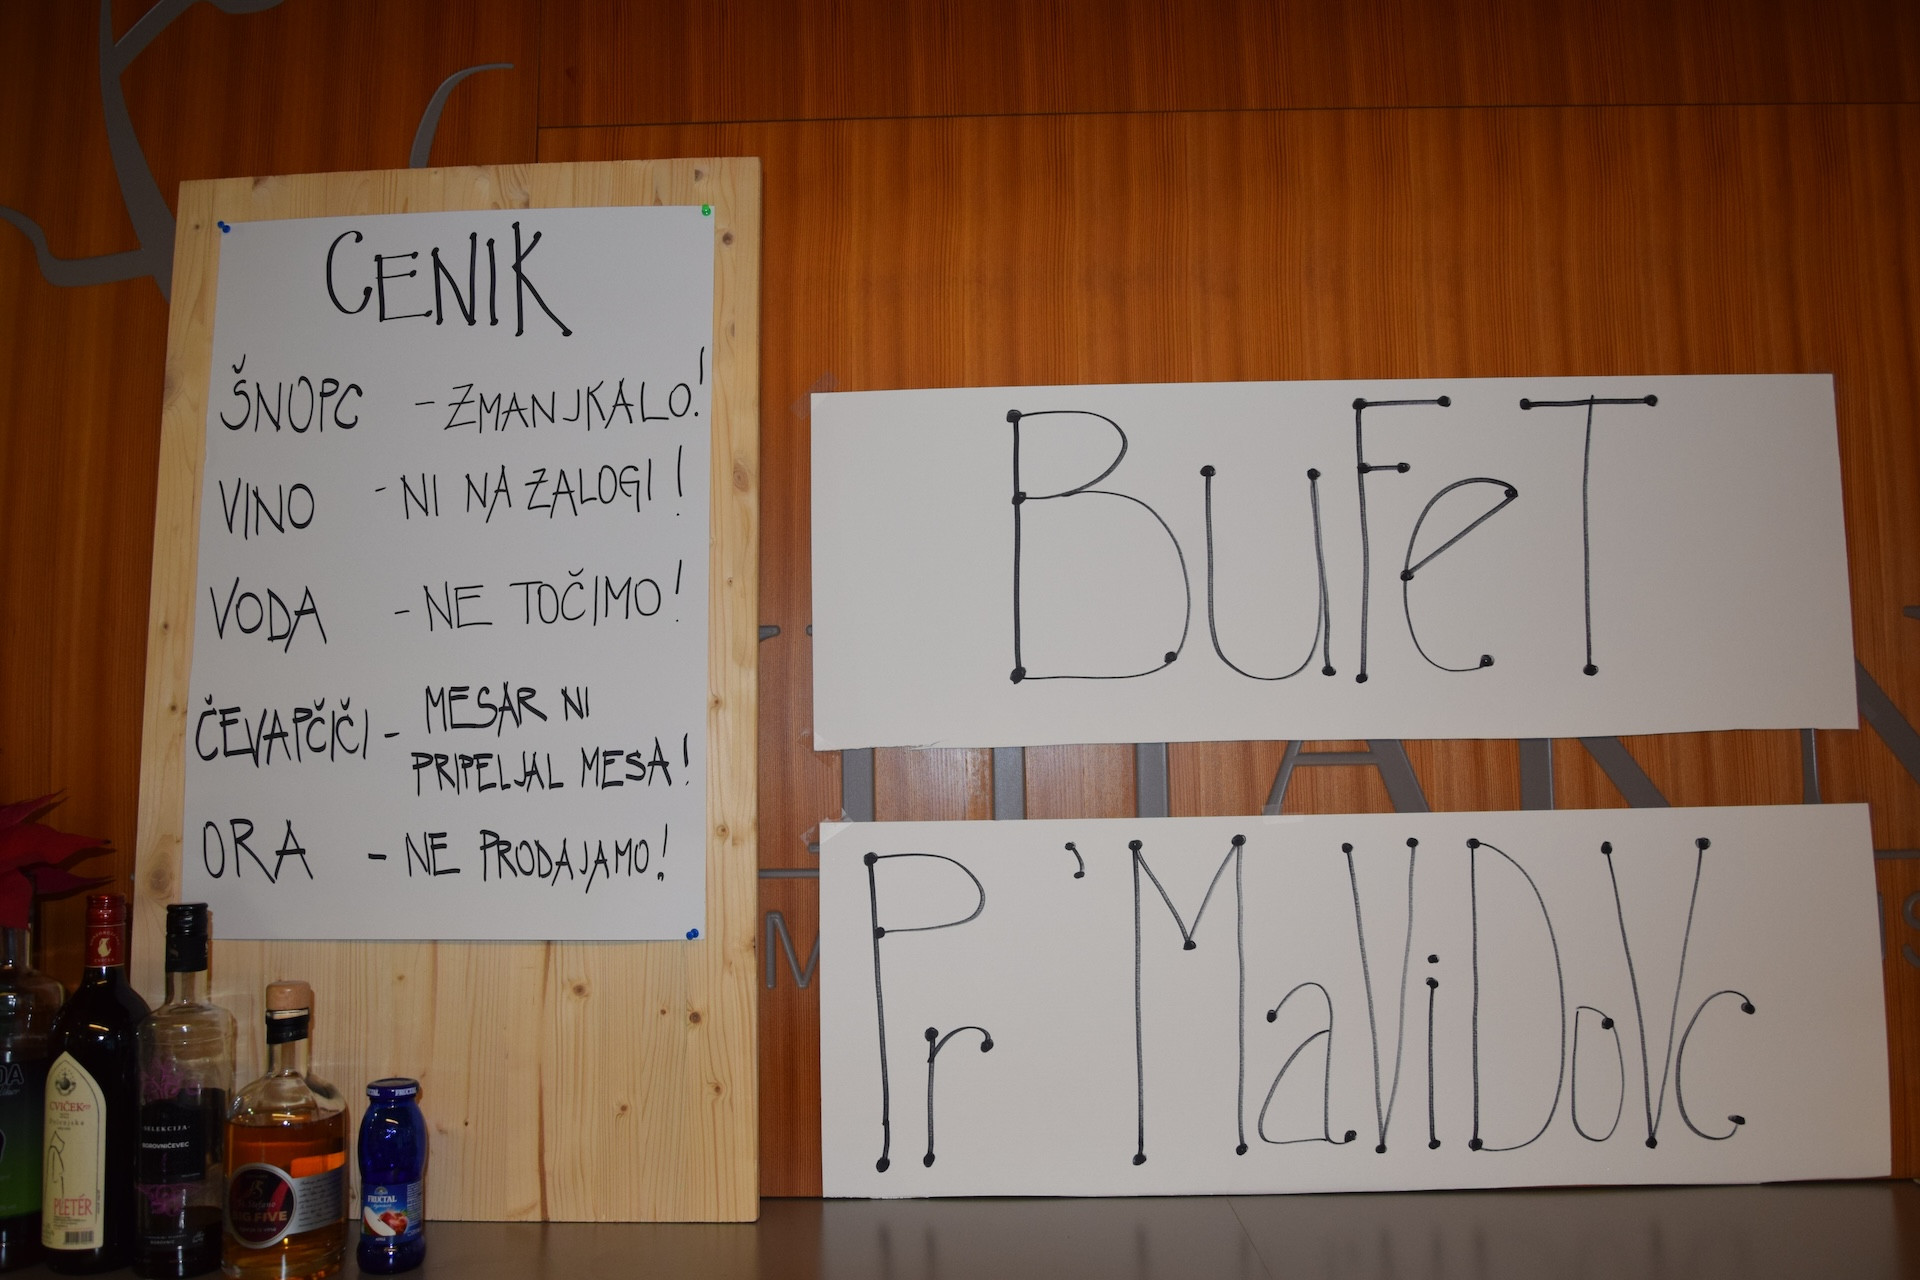 CENIK
ŠNOPC - ZMANJKALO!
VINO - NI NA ZALOGI!
VODA - NE TOČIMO!
ČEVAPČIČI - MESAR NI
PRIPELJAL MESA!
ORA - NE PRODAJAMO!
BuFeT
Pr 'MaViDoVc
CVIČEK
PLETÉR
SELEKCIJA
BOROVNIČEVEC
FIVE
FRUCTAL